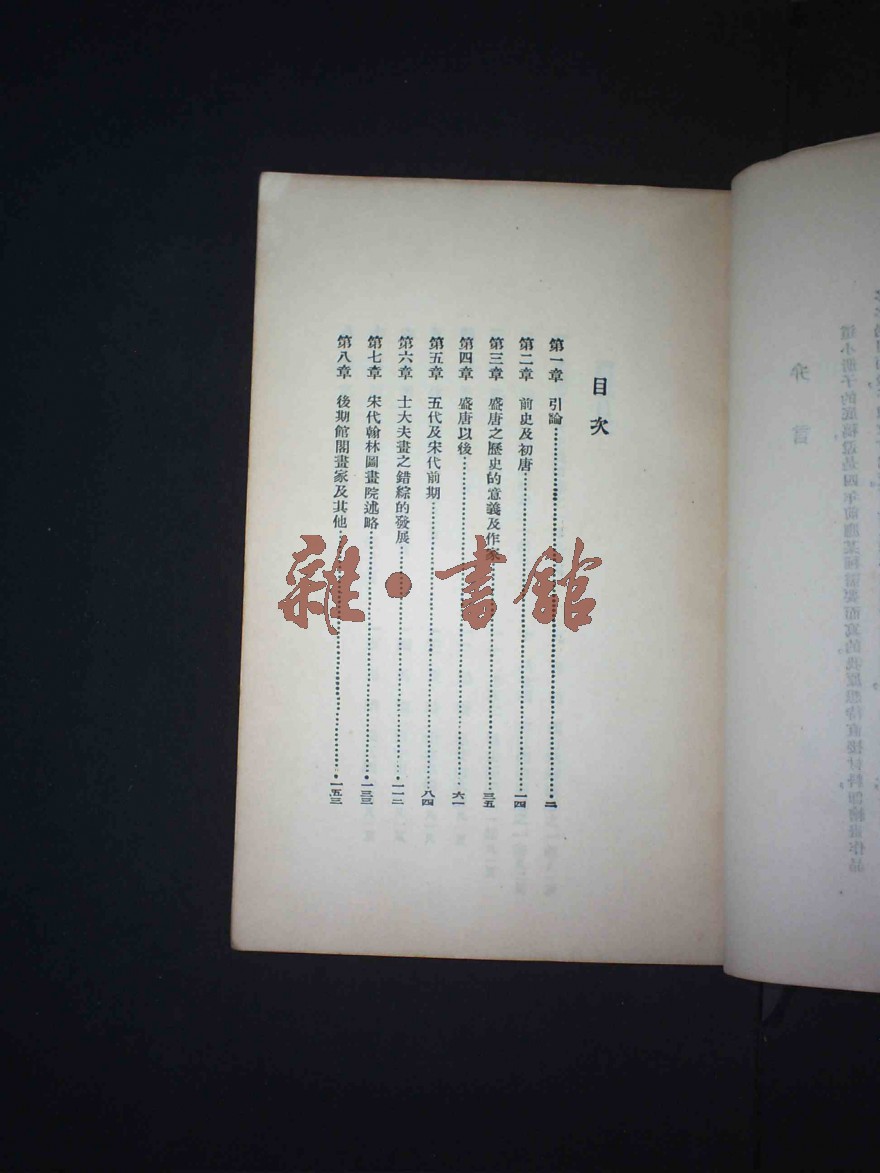 目次
第一章 引論 二
第二章 前史及初唐 一四
第三章 盛唐之歷史的意義及作家 三五
第四章 盛唐以後 六一
第五章 五代及宋代前期 八四
第六章 士大夫畫之錯綜的發展
第七章 宋代翰林圖畫院述略 一三三
第八章 後期館閣畫家及其他 一五三
雜·書館